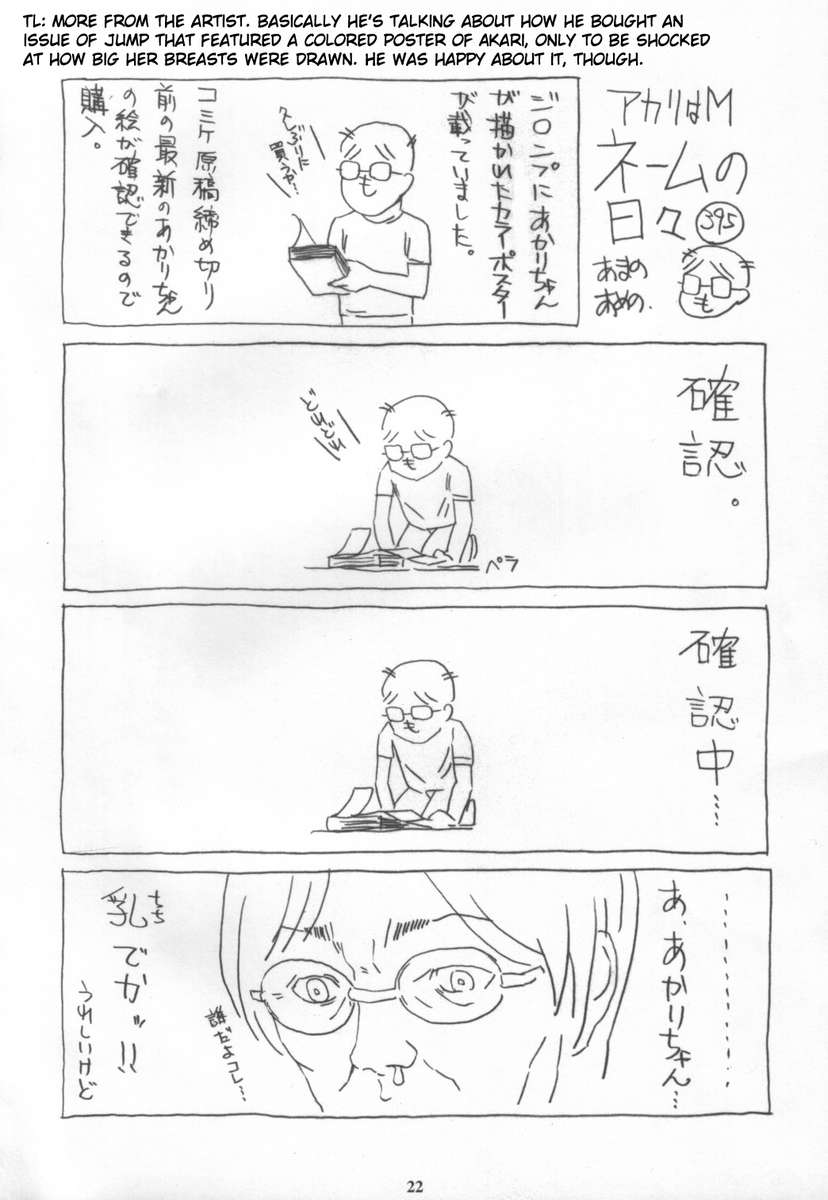 TL: MORE FROM THE ARTIST. BASICALLY HE'S TALKING ABOUT HOW HE BOUGHT AN
ISSUE OF JUMP THAT FEATURED A COLORED POSTER OF AKARI, ONLY TO BE SHOCKED
AT HOW BIG HER BREASTS WERE DRAWN. HE WAS HAPPY ABOUT IT, THOUGH.
アカリはM
ネームの
日々
395
あまの
あめの.
ジャンプにあかりちゃん
が描かれたカラーポスター
が載っていました。
久しぶりに
買うや…
コミケ原稿締め切り
前の最新のあかりちゃん
の絵が確認できるので
購入。
確認。
どれどれ
ペラ
確認中…
………
あ、あかりちゃん…
誰だよコレ…
乳でかッ!!
ちち
うれしいけど
22